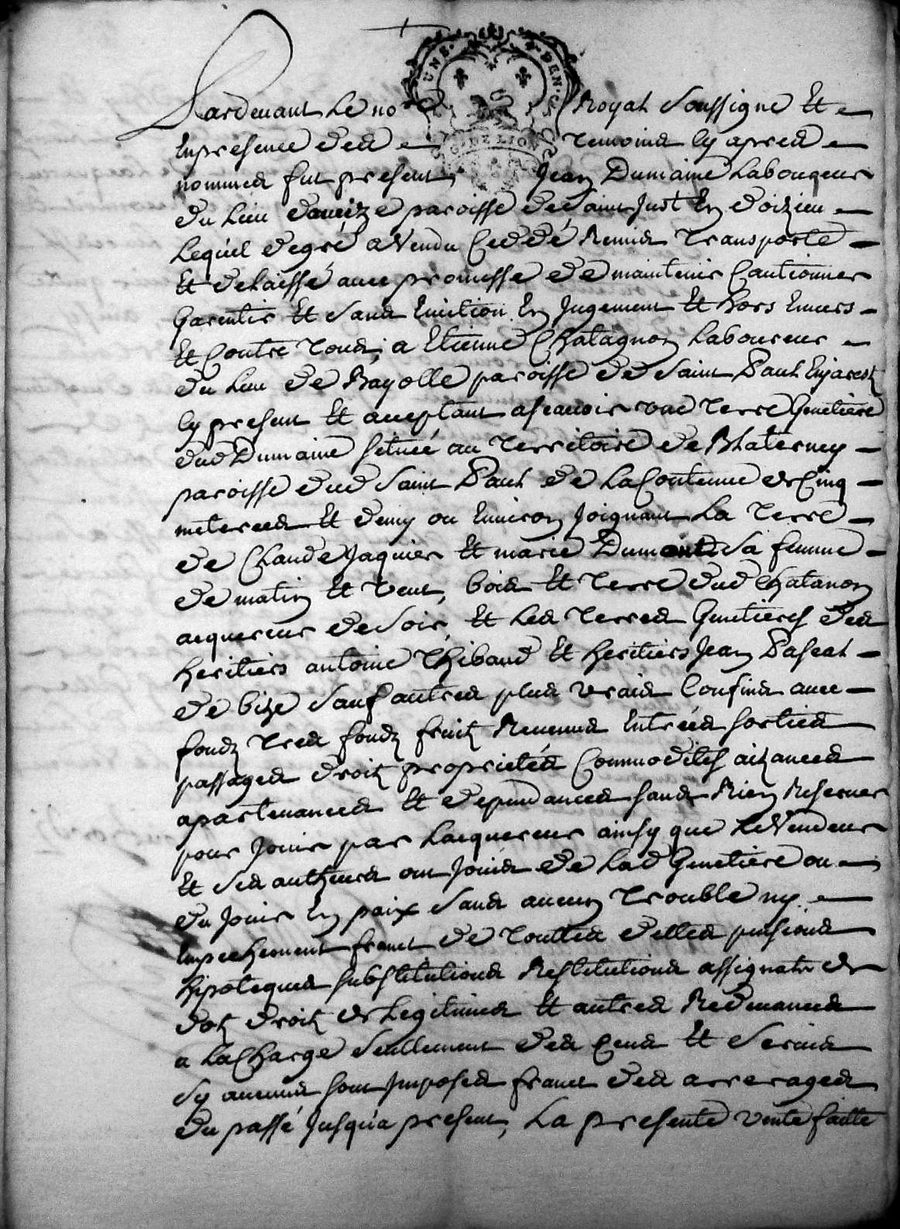 UNE. DEN.
G. DE LION
Pardevant Le no Royal Soussigné Et
Enpresence des temoins cy apres
nommes fut present, Jean Dumaine Laboureur
du Lieu paroisse de Saint Just En doizieu
Lequel de gré a Vendu Ceddé Remis transporté
Et delaissé avec promesse de maintenir Cautionner
Garentir Et Sans Eviction En Jugement Et hors Envers
Et Contre tous, a Etienne Chatagnon Laboureur
du Lieu de Bayolle paroisse de Saint Paul Enjarest
cy present Et acceptant ascavoir une terre Genetiere
dud Dumaine scituée au territoire de
paroisse dud Saint Paul de La Contenue de Cinq
meterees Et demy ou Environ Joignant La terre
de Claude Jaquier Et marie Sa femme
de matin Et vent, bois Et terre dud Chatanon
acquereur de Soir, Et Les terres Genetieres des
heritiers antoine Thibaud Et heritiers Jean Pascal
de bize Sauf autres plus vrais Confins avec
fondz tres fondz fruitz Revenus Entrées sorties
passages droitz proprietés Commodites aizances
apartenances Et dependances sans Rien Reserver
pour Jouir par Lacquereur ainsy que Le Vendeur
Et Ses autheurs ont Jouis de Lad Genetiere ou
du Jouir En paix Sans aucun trouble ny
Empechement franc de touttes dettes pensions
hipoteques substitutions Restitutions assignatz de
dot droitz de Legitimes Et autres Redevances
a La Charge Seullement des Cens Et Servis
Sy aucuns sont Imposes franc des arrerages
du passé Jusqu'a present, La presente vente faitte